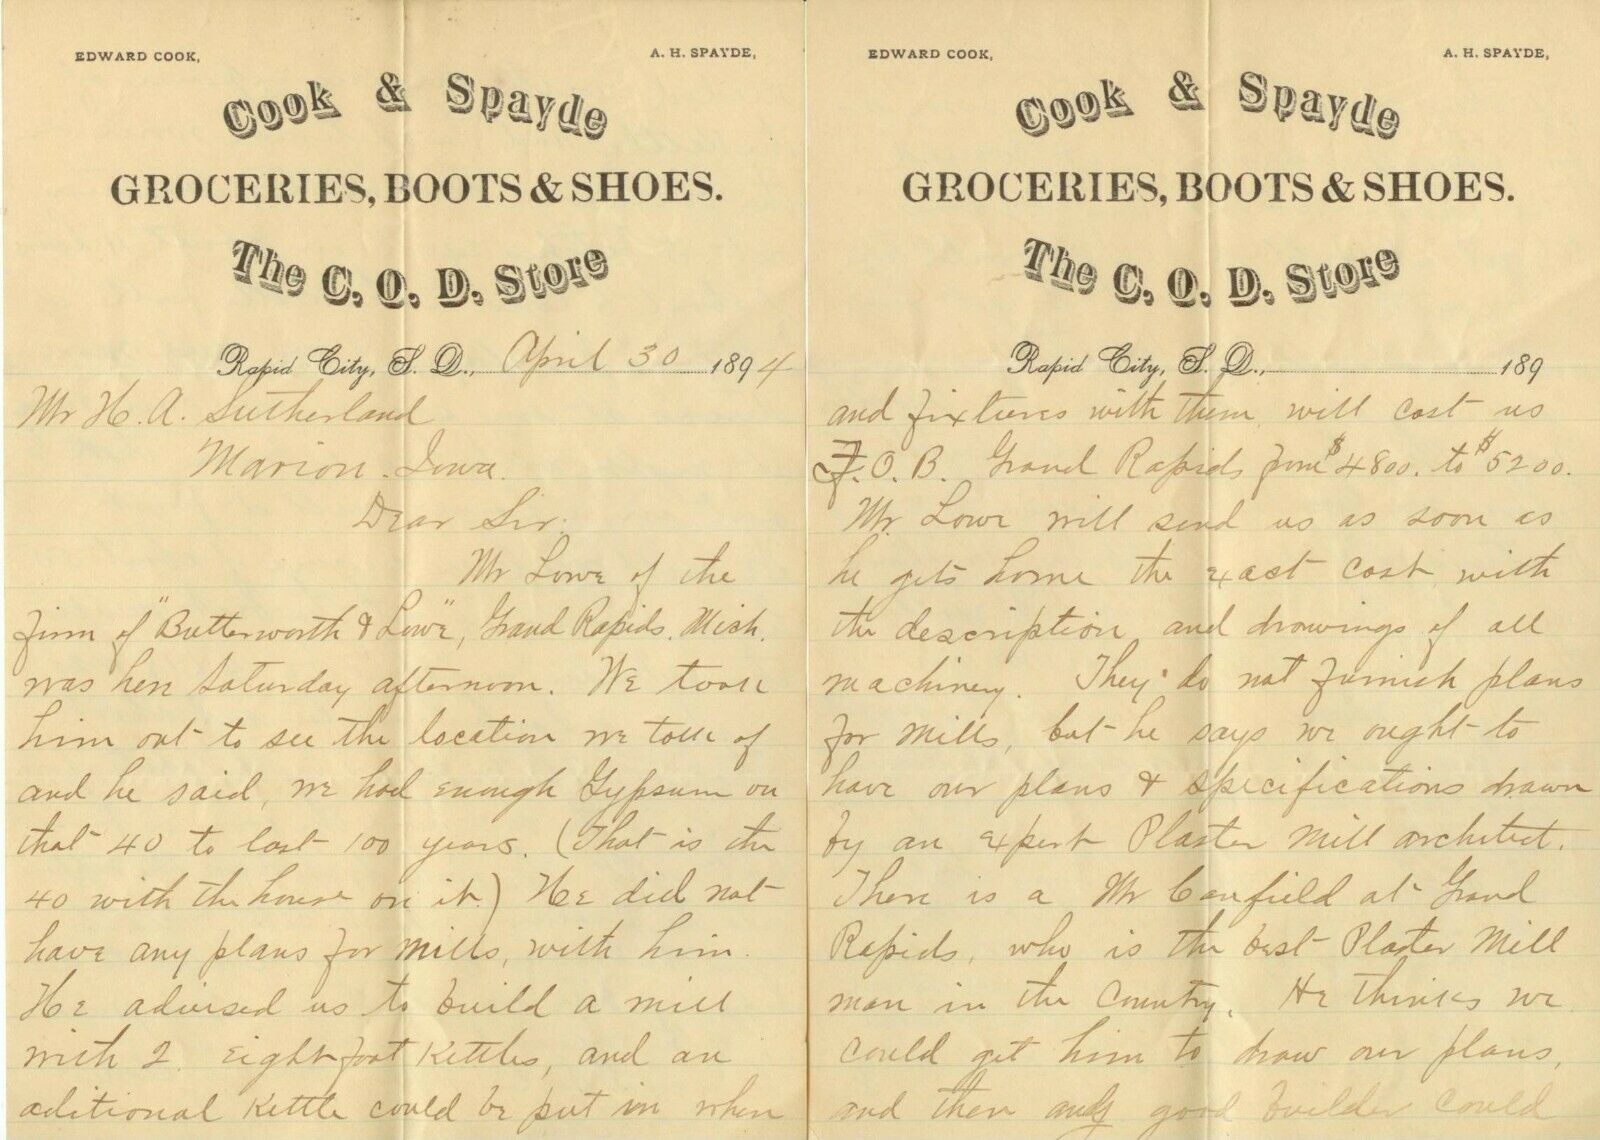 EDWARD COOK, A. H. SPAYDE,
Cook & Spayde
GROCERIES, BOOTS & SHOES.
The C. O. D. Store
Rapid City, S. D., April 30 1894
Mr H. A. Sutherland
Marion. Iowa.
Dear Sir.
Mr Lowe of the
firm of "Butterworth & Lowe", Grand Rapids. Mich.
was here Saturday afternoon. We took
him out to see the location we talk of
and he said, we had enough Gypsum on
that 40 to last 100 years. (That is the
40 with the house on it.) He did not
have any plans for mills, with him.
He adviesed us to build a mill
with 2. eight foot Kettles, and an
aditional Kettle could be put in when
EDWARD COOK, A. H. SPAYDE,
Cook & Spayde
GROCERIES, BOOTS & SHOES.
The C. O. D. Store
Rapid City, S. D., 189
and fixtures with them will cost us
F.O.B. Grand Rapids from $4800. to $5200.
Mr. Lowe will send us as soon as
he gets home the exact cost, with
the description and drawings of all
machinery. They do not furnish plans
for mills, but he says we ought to
have our plans & specifications drawn
by an expert Plaster Mill architect.
There is a Mr Canfield at Grand
Rapids, who is the best Plaster Mill
man in the Country. He thinks we
could get him to draw our plans,
and then any good builder could